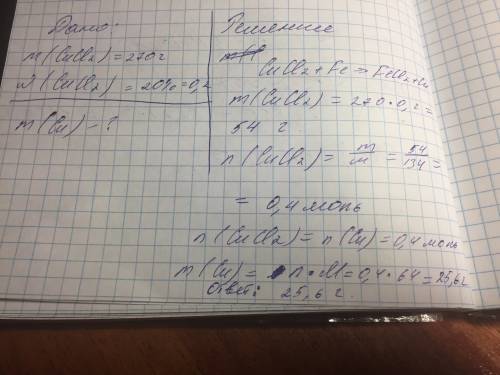 Дано:
m(CuCl2)=270г
W(CuCl2)=20%=0,2
m(Cu)-?
Решение
CuCl2+Fe=>FeCl2+Cu
m(CuCl2)=270·0,2=
54 г
n(CuCl2)=m/M=54/134=
=0,4моль
n(CuCl2)=n(Cu)=0,4моль
m(Cu)=n·M=0,4·64=25,6г
Ответ: 25,6 г.